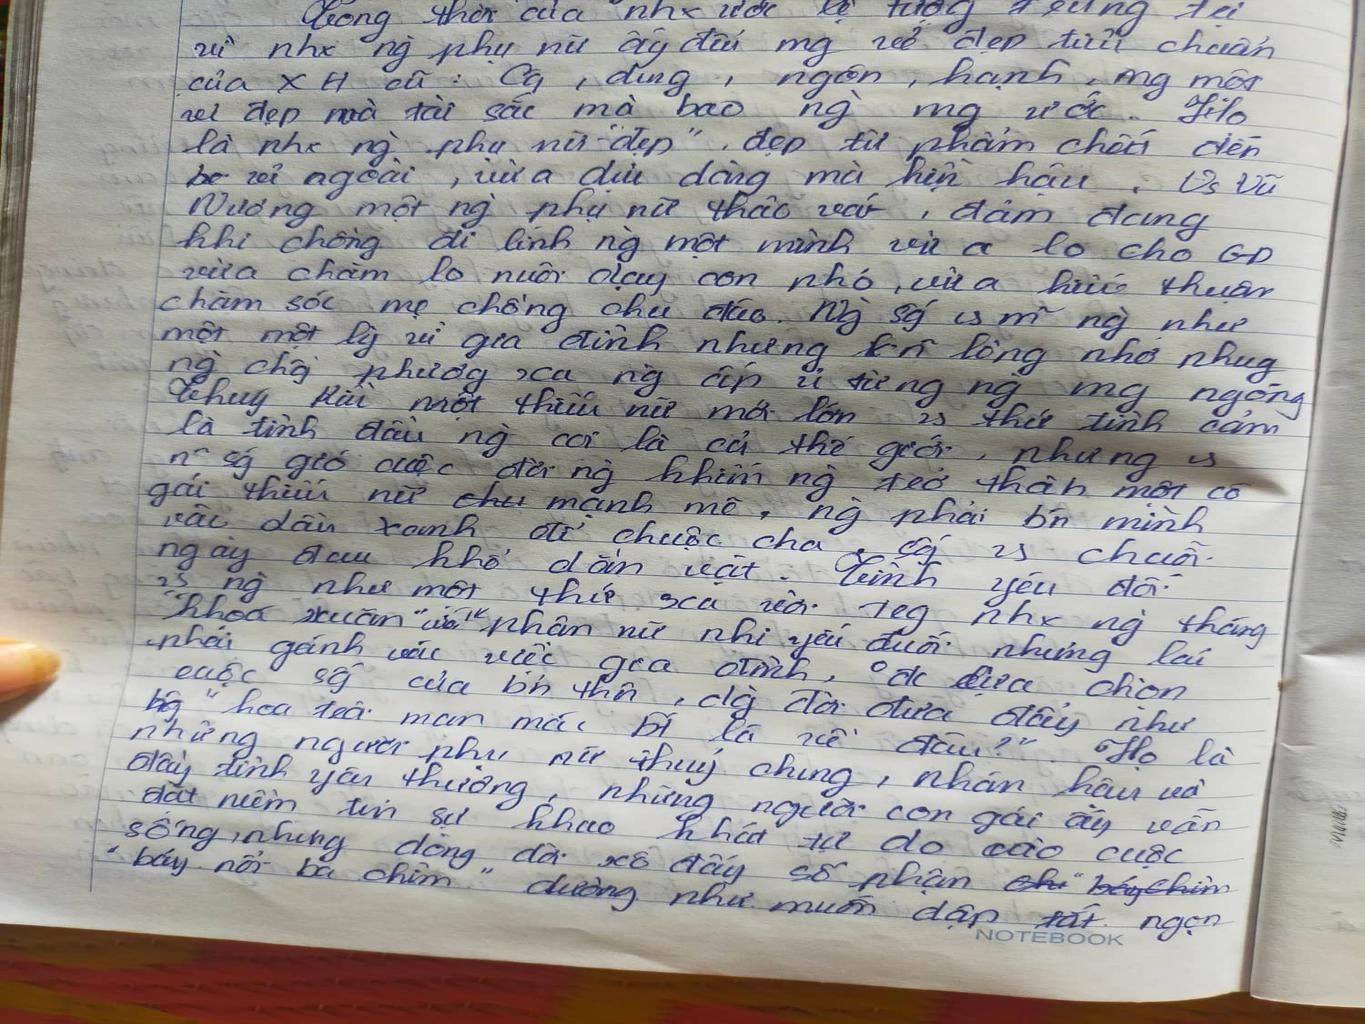 của nhx ước lệ tượng trưng tại
vì nhx ng̀ phụ nữ ấy đều mg vẻ đẹp tiêu chuẩn
của XH cũ : Cg , dung , ngôn , hạnh , mg một
vẻ đẹp mà tài sắc mà bao ng̀ mg ước. Họ
là nhx ng̀ phụ nữ "đẹp" , đẹp từ phẩm chất đến
vẻ ngoài , vừa dịu dàng mà hiền hậu . Vs Vũ
Nương một ng̀ phụ nữ tháo vát , đảm đang
khi chồng đi lính ng̀ một mình vừa lo cho GĐ
vừa chăm lo nuôi dạy con nhỏ , vừa hiếu thuận
chăm sóc mẹ chồng chu đáo. Ng̀ sg vs ng̀ như
một một lý vì gia đình nhưng lòng nhớ nhug
ng̀ chg phươg xa ng̀ ấp ủ từng ng mg ngóng
Thuy Kiều một thiếu nữ mới lớn vs thứ tình cảm
là tình đầu ng̀ coi là cả thế giới , nhưng vs
sg gió cuộc đời ng̀ khiến ng̀ trở thành một cô
gái thiếu nữ mạnh mẽ , ng̀ phải bn mình
vào lầu xanh để chuộc cha , sg vs chuỗi
ngày đau khổ dằn vặt. Tình yêu đối
vs ng̀ như một thứ xa vời. Trg nhx ng̀ tháng
"khoá xuân" phân nữ nhi yếu đuối nhưng lại
phải gánh vác việc gia đình , đc lựa chọn
cuộc sg của bn thân , dg đời đưa đẩy như
bg "hoa trôi man mác bt là về đâu?" Họ là
những người phụ nữ thuỷ chung , nhân hậu và
đầy tình yêu thương , những người con gái ấy vẫn
đặt niềm tin sự khao khát tự do vào cuộc
sống , nhưng dòng đời xô đẩy số phận
"bảy nổi ba chìm" dường như muốn dập tắt ngọn
NOTEBOOK